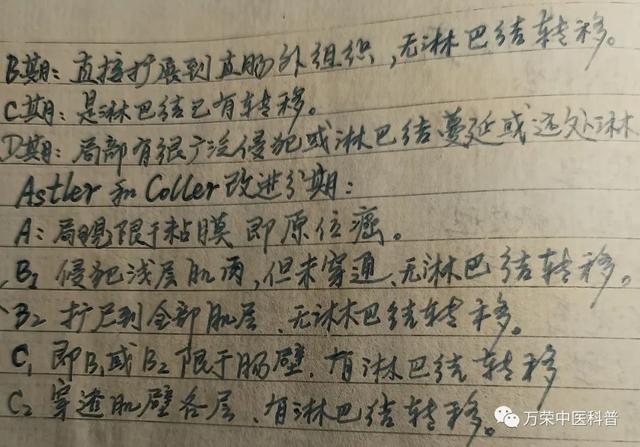 B期：直接扩展到直肠外组织，无淋巴结转移。
C期：是淋巴结已有转移。
D期：局部有很广泛侵犯或淋巴结蔓延或远处淋
Astler和Coller改进分期：
A：局限于粘膜即原位癌。
B₁侵犯浅层肌肉，但未穿通、无淋巴结转移。
B₂扩展到全部肌层、无淋巴结转移。
C₁即B₁或B₂限于肠壁、有淋巴结转移
C₂穿透肌壁各层、有淋巴结转移。
万荣中医科普